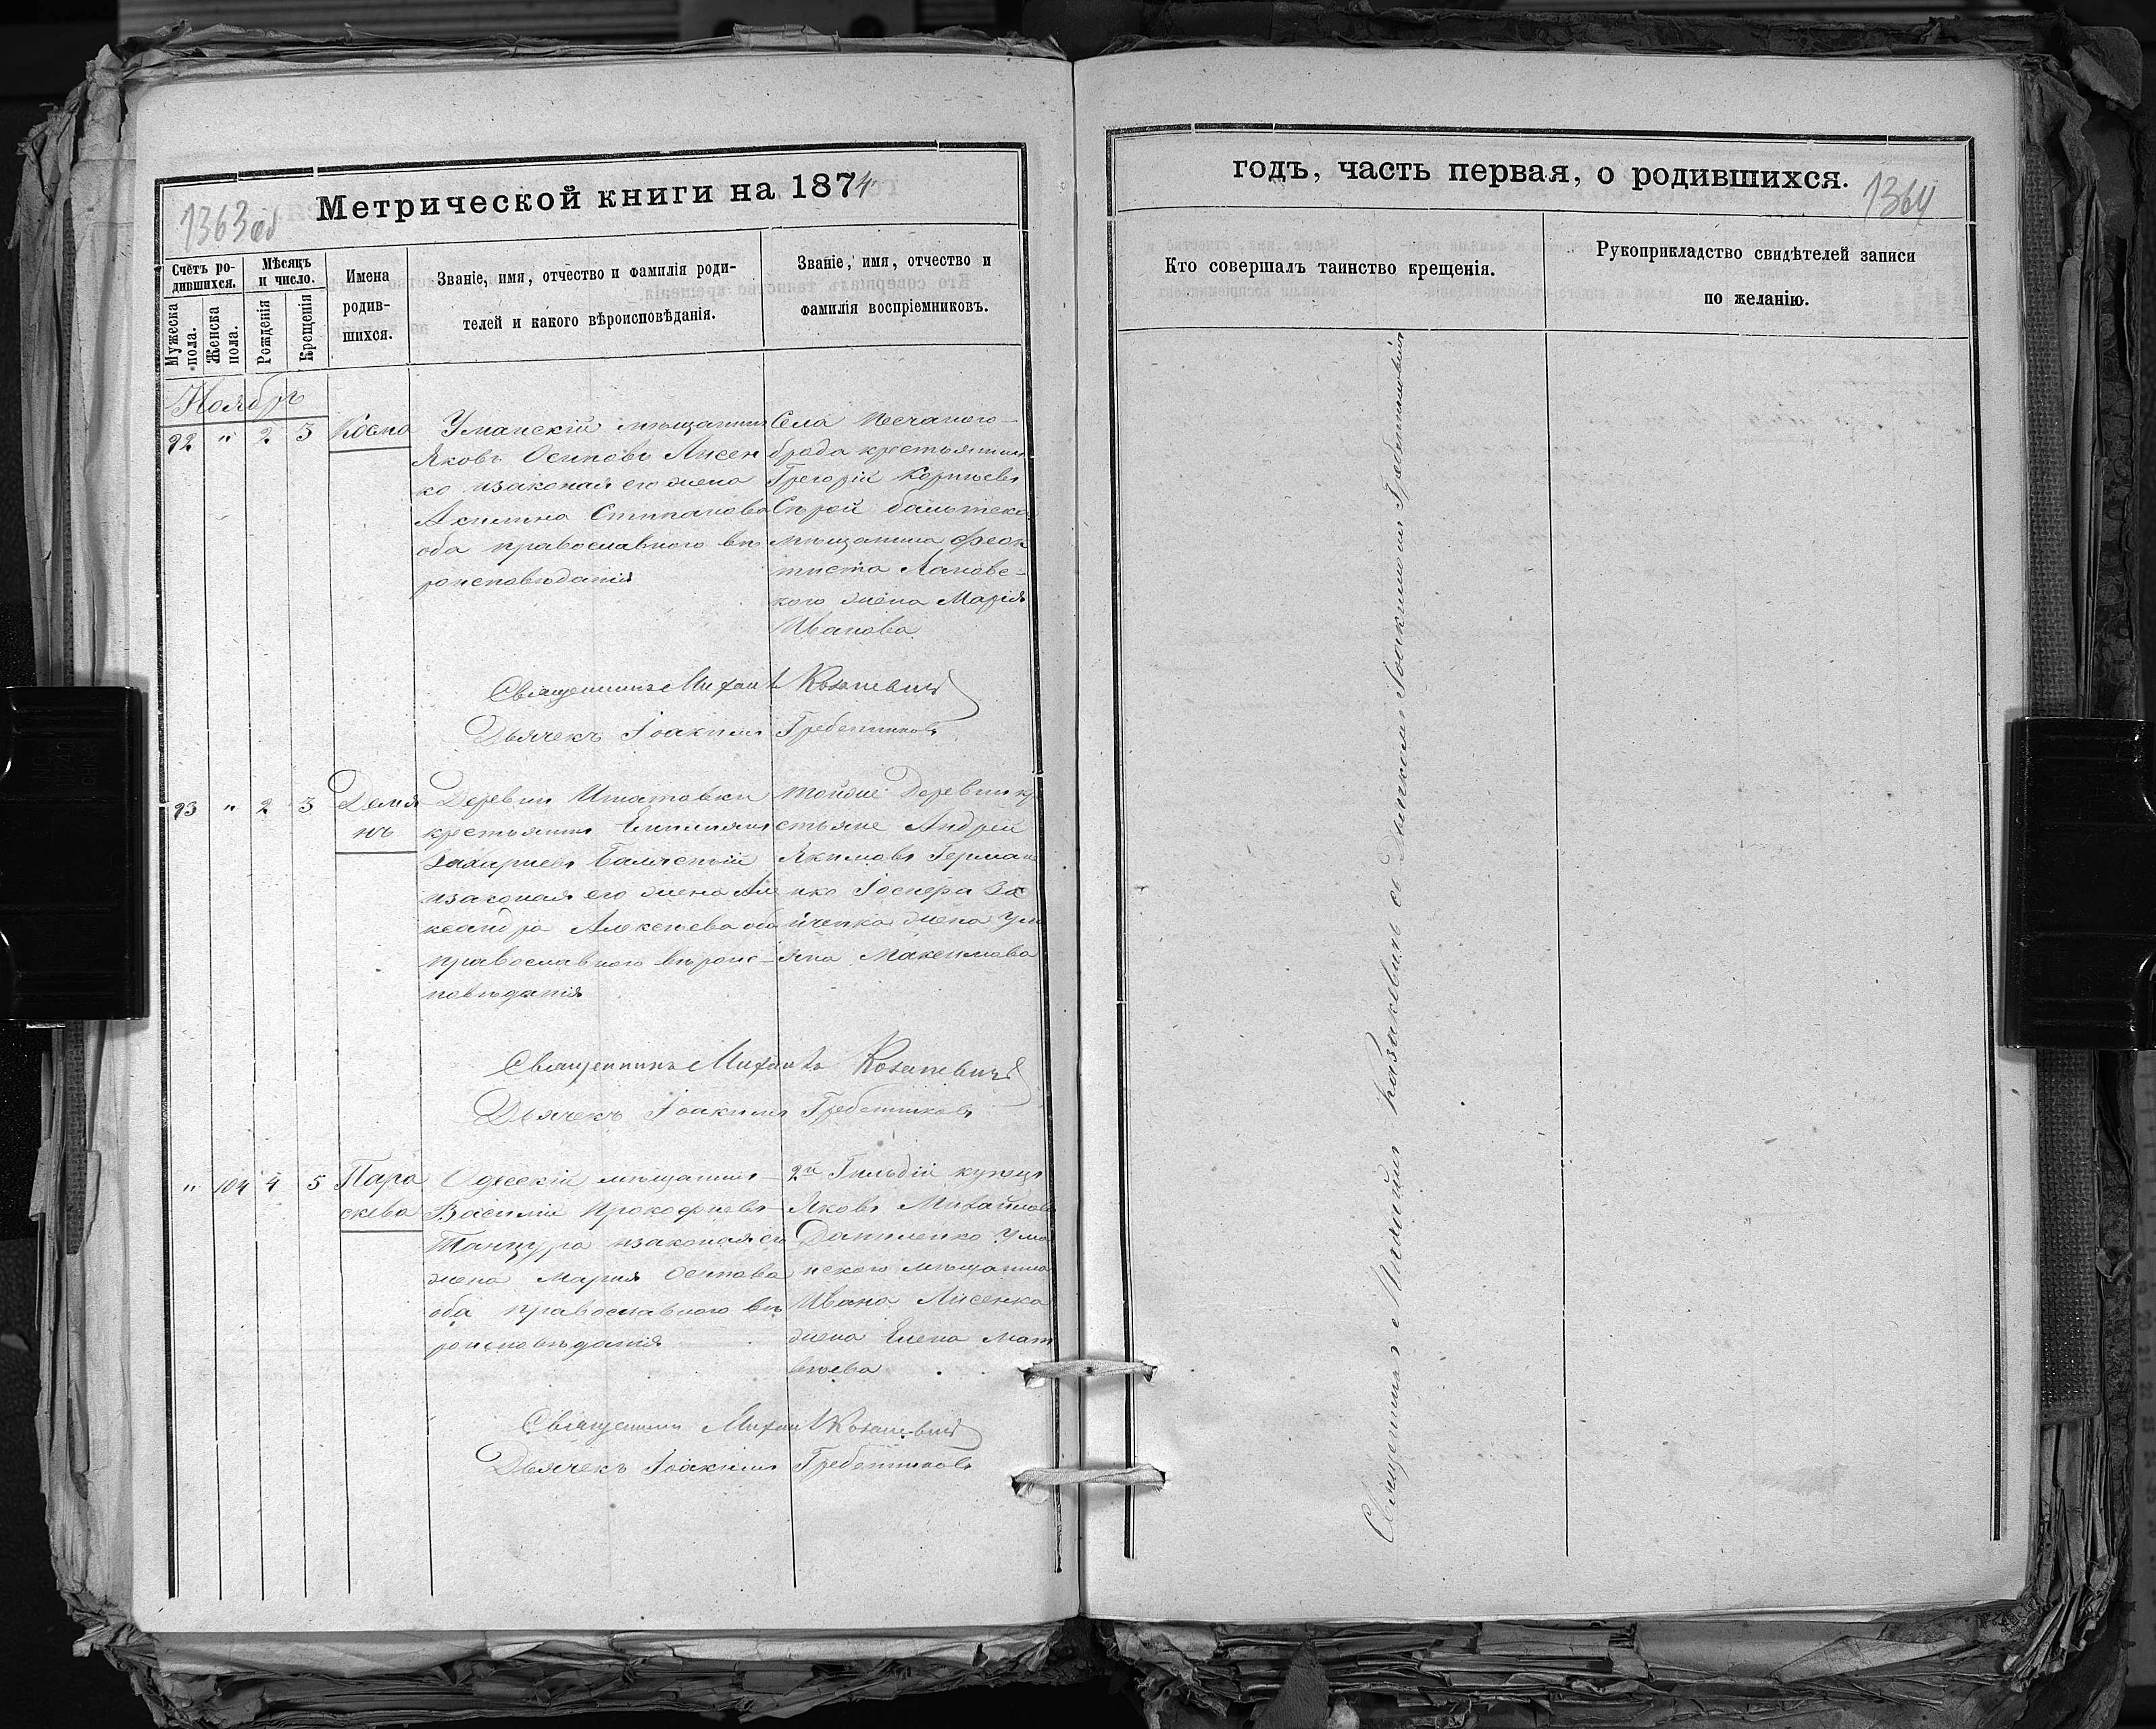 Метрической книги на 1874
1363 об
Счетъ ро-
дившихся.
Мѣсяцъ
и число.
Мужеска
пола.
Женска
пола.
Рожденія
Крещенія
Имена
родив-
шихся.
Званіе, имя, отчество и фамилія роди-
телей и какого вѣроисповѣданія.
Званіе, имя, отчество и
фамилія воспріемниковъ.
Ноябрь
92 " 2 3 Косма
Уманскій мѣщанинъ
Яковъ Осиповъ Лисен
ко изаконая его жена
Акилина Стипанова
оба православного вѣ
роисповѣданія
Села Песчаного
брода крестьянинъ
Григорій Корнѣевъ
Сѣрой
мѣщанина Феок
тиста Лановс-
кого жена Марія
Иванова
Священникъ Михаилъ Козакевичъ
Дьячекъ Іоакимъ Гребенниковъ
93 " 2 3 Демя
нъ
Деревни
крестьянинъ Емилиянъ
Захариевъ
изаконая его жена Але
ксандра Алексѣева оба
православного вѣроис-
повѣданія
тойже Деревни кр
стьяне Андрей
Якимовъ Германе
нко
жена Ули
яна Максимова
Священникъ Михаилъ Козакевичъ
Дьячекъ Іоакимъ Гребенниковъ
" 104 4 5 Пара
скева
Одесскій мѣщанинъ
Василій Прокофиевъ
Танцура изаконая его
жена Мария Осипова
оба православного вѣ
роисповѣданія
2й Гильдіи купецъ
Яковъ Михайловъ
Даниленко Ума
нского мѣщанина
Ивана Лисенка
жена Елена Мат
вѣева
Священникъ Михаилъ Козакевичъ
Дьячекъ Іоакимъ Гребенниковъ
годъ, часть первая, о родившихся.
1364
Кто совершалъ таинство крещенія.
Рукоприкладство свидѣтелей записи
по желанію.
Священникъ Михаилъ Козакевичъ съ Дьячкомъ Іоакимомъ Гребенниковымъ